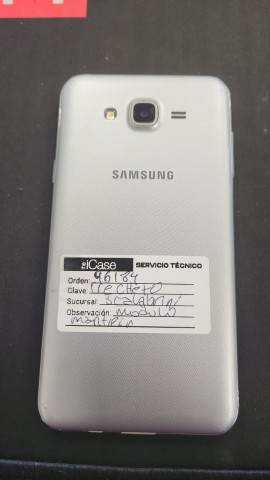 SAMSUNG
iCase SERVICIO TÉCNICO
Orden: 46184
Clave:
Sucursal: Scalabrini
Observación: Modulo